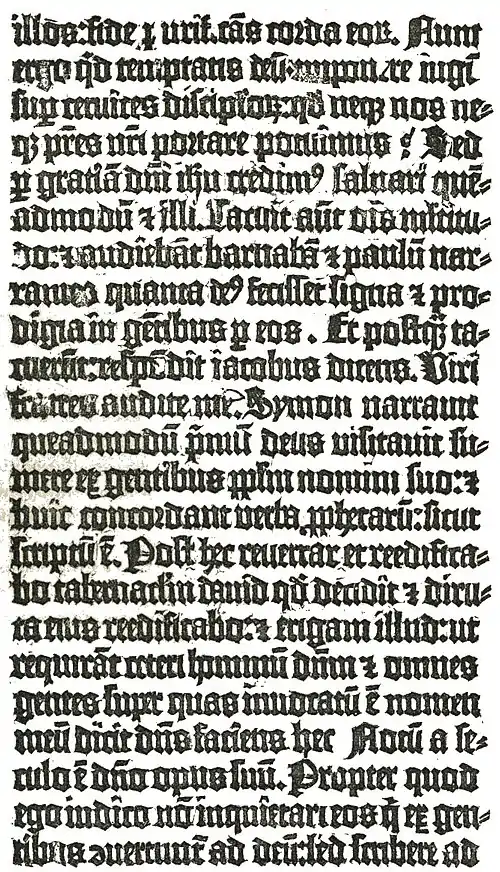 illos: fide ꝑ urif.cās corda eoꝝ. Nunc
ergo qͥd temptatis deū: imponere iugū
suꝑ ceruices discipłoꝝ: qd neqꝫ nos ne-
qꝫ p̄res nr̄i portare potuimus? Sed
ꝑ gratiā dn̄i ihu credimꝰ saluari quē-
admodū ⁊ illi. Tacuit aūt oīs multitu-
do: ⁊ audiebāt barnabā ⁊ paulū nar-
rantes quanta deꝰ fecisset signa ⁊ pro-
digia in gētibus ꝑ eos. Et postqꝫ ta-
cuerūt: respōdit iacobus dicens. Viri
fratres audite me. Symon narrauit
queadmodū pͥmū deus visitauit su-
mere ex gentibus ppłm nomini suo: ⁊
huic concordant verba ꝓphetarū: sicut
scriptū ē. Post hec reuertar et reedifica-
bo tabernaclm̄ dauid qd̄ decidit: ⁊ diru-
ta eius reedificabo: ⁊ erigam illud: ut
requirāt ceteri hominū dn̄m ⁊ omnes
gentes super quas inuocatū ē nomen
meū dicit dn̄s faciens hec Notū a se-
culo ē dn̄o opus suū. Propter quod
ego iudico nō inquietari eos qͥ ex gen-
tibus ↄuertunt̄ ad deū: sed scribere ad